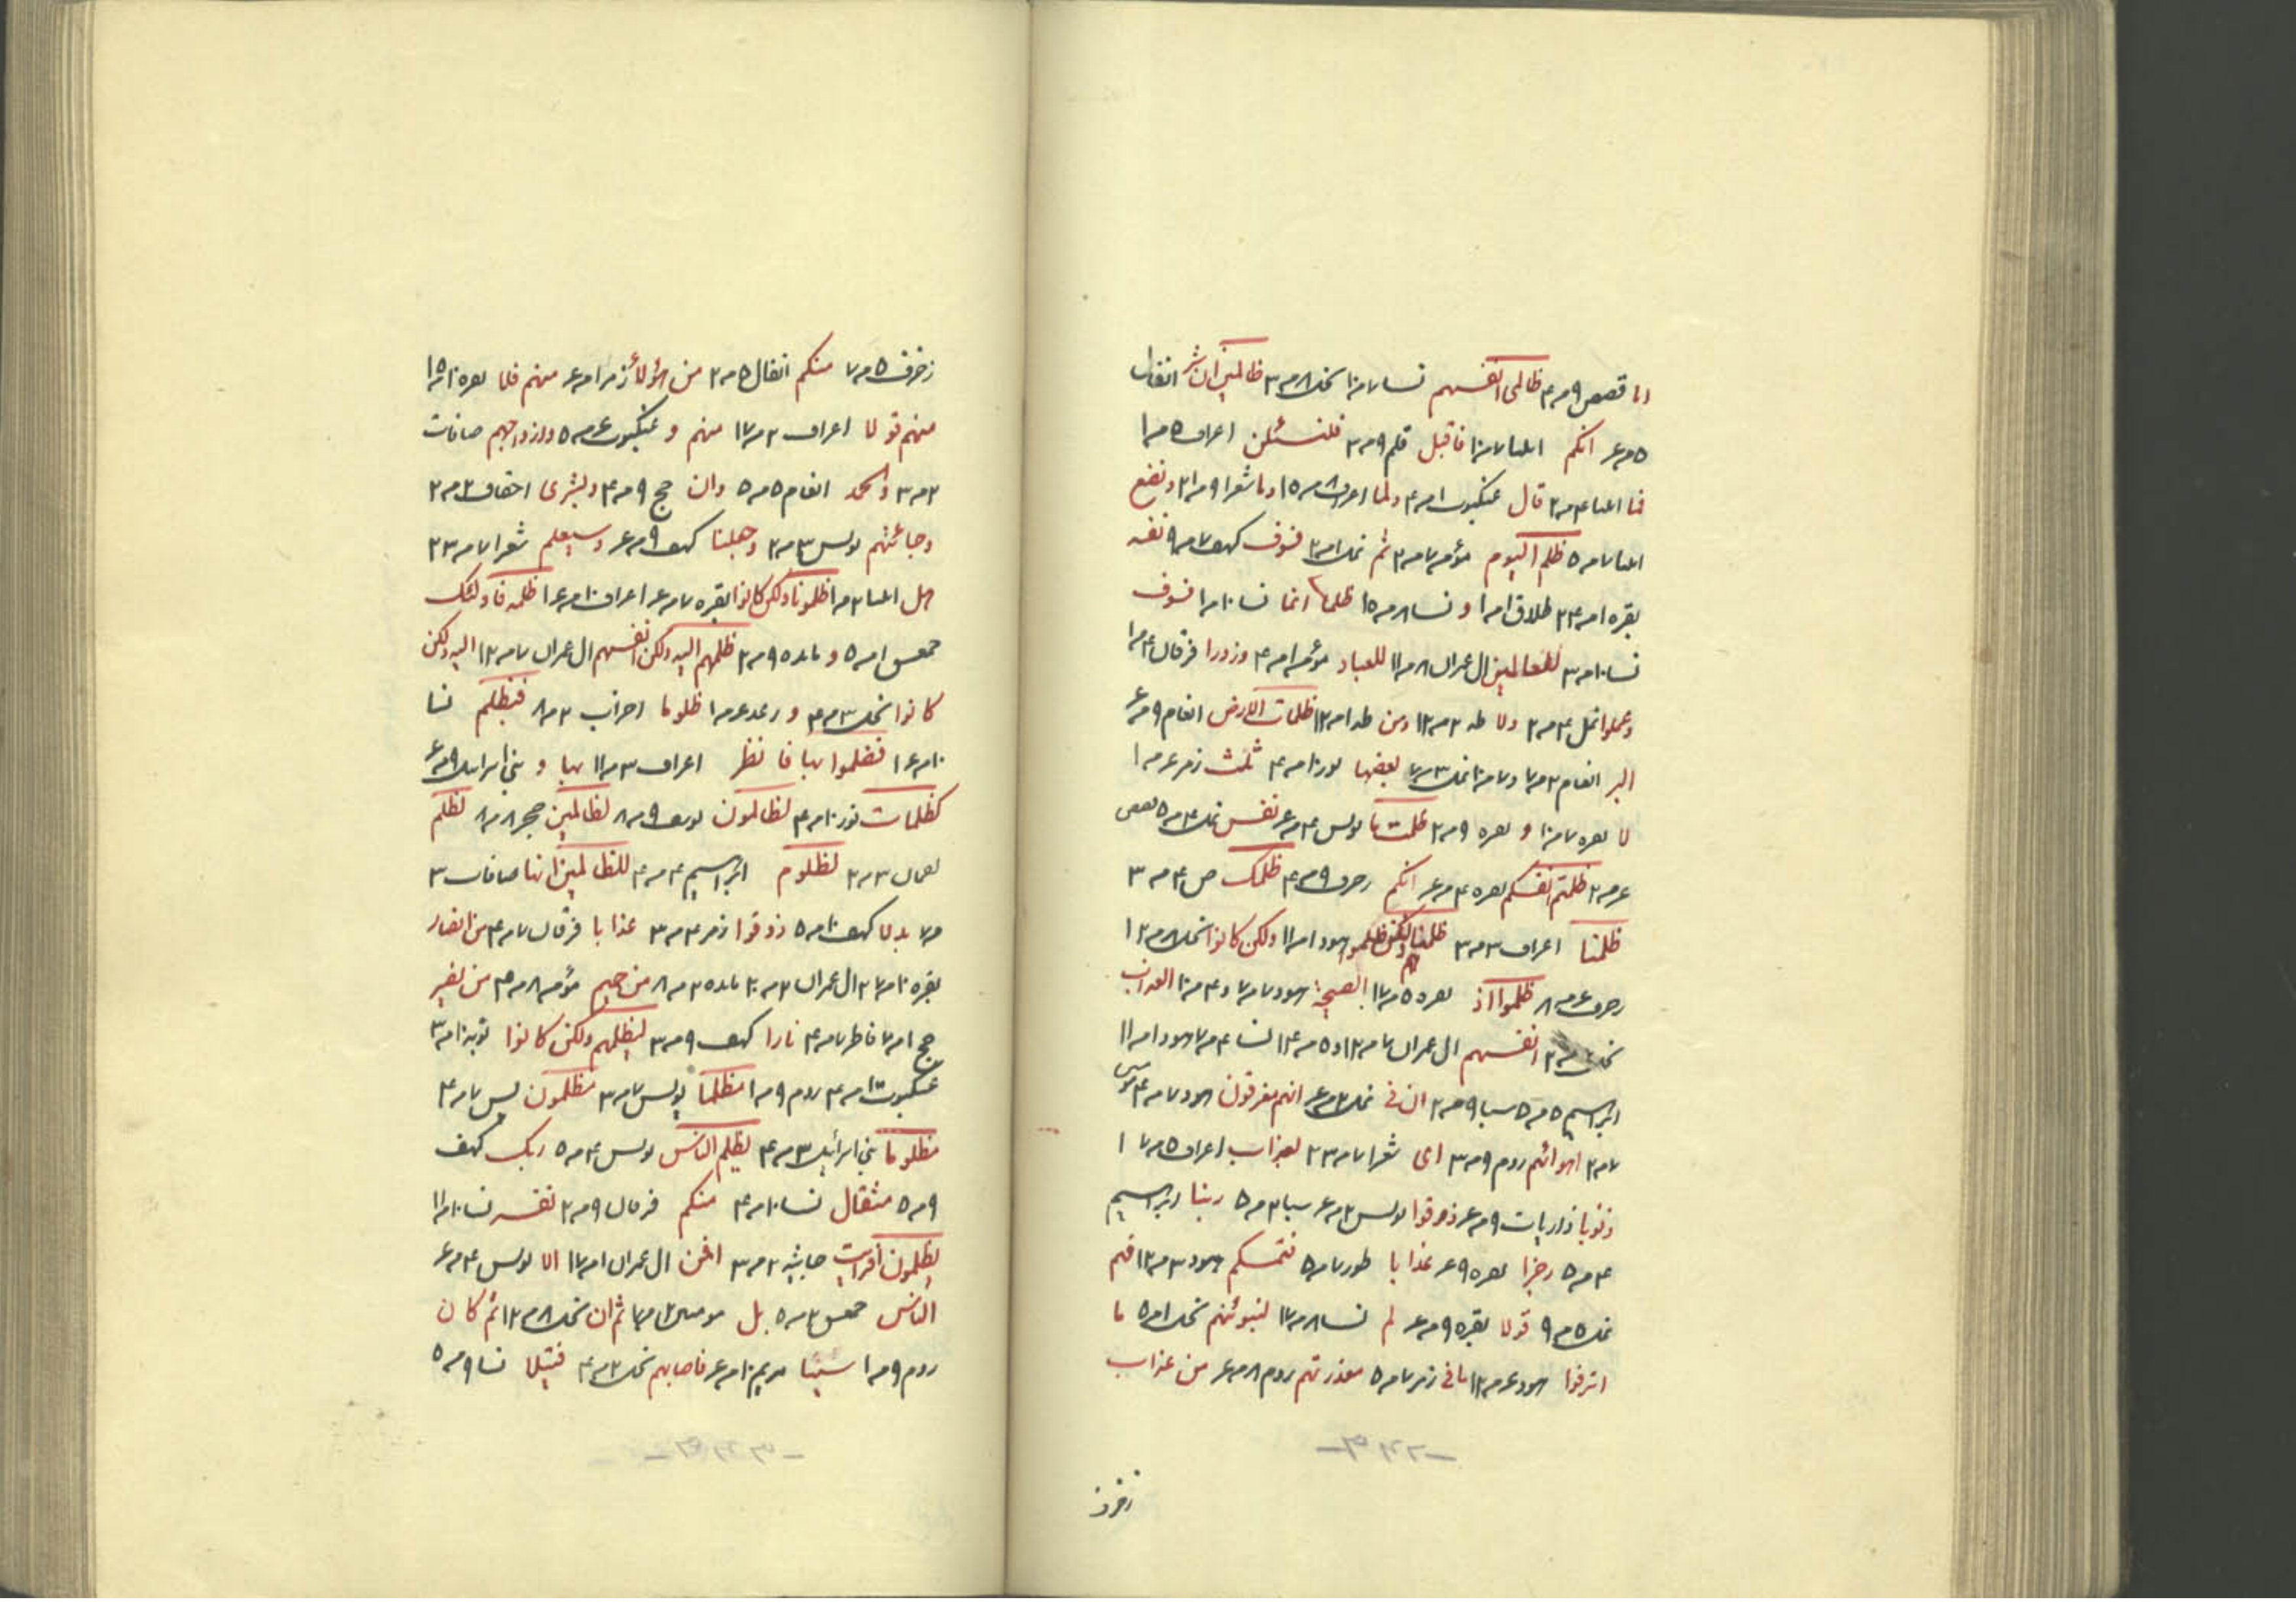 قصص ۹ مر ۴ ظالمی انفسهم نسا ۷ مر ۱۰ نحل ۸ مر ۳ ظالمین ان شر انفال
۵ مر ۶ انکم انبیا ۷ مر ۱۰ فاقبل قلم ۹ مر ۲ فلنسئلن اعراف ۵ مر ۱
فما انبیا ۴ مر ۲ قال عنکبوت ۱ مر ۴ ولما اعراف ۸ مر ۱۵ وما شعرا ۹ مر ۲۱ ونضع
انبیا ۷ مر ۵ ظلم الیوم مؤمن ۷ مر ۲ ثم نمل ۱ مر ۲ فسوف کهف ۷ مر ۹ نفسه
بقره ۱ مر ۲۳ طلاق ۱ مر ۱ و نسا ۸ مر ۱۵ ظلما انما نسا ۱۰ مر ۱ فسوف
نسا ۱۰ مر ۳ للعالمین ال عمران ۸ مر ۱۱ للعباد مؤمن ۱ مر ۴ وزورا فرقان ۴ مر ۱
وعلوا نمل ۴ مر ۲ ولا طه ۲ مر ۱۲ ومن طه ۱ مر ۱۲ ظلمات الارض انعام ۹ مر ۶
البر انعام ۳ مر ۷ و ۷ مر ۱۰ نمل ۳ مر ۷ بعضها نور ۱۰ مر ۴ ثلث زمر ۶ مر ۱
لا بقره ۷ مر ۱۰ و بقره ۹ مر ۲ ظلمت ما یونس ۴ مر ۶ نفسی نمل ۴ مر ۵ قصص
۶ مر ۲ ظلمتم انفسکم بقره ۴ مر ۶ انکم زخرف ۹ مر ۴ ظلمک ص ۴ مر ۳
ظلمنا اعراف ۳ مر ۳ ظلمناهم ولکن ظلموا هود ۱ مر ۱۱ ولکن کانوا نحل ۸ مر ۱۲
زخرف ۶ مر ۸ ظلموا اذ بقره ۵ مر ۱۷ الصیحة هود ۷ مر ۷ و ۴ مر ۱۰ العذاب
انفسهم ال عمران ۷ مر ۱۳ و ۵ مر ۱۴ نسا ۴ مر ۷ هود ۱ مر ۱۱
ابراهیم ۵ مر ۵ سبا ۹ مر ۲ ان فی نمل ۲ مر ۶ انهم مغرقون هود ۷ مر ۴ مؤمنین
۷ مر ۲ اهوائهم روم ۹ مر ۳ ای شعرا ۷ مر ۲۳ بعذاب اعراف ۵ مر ۱۷
ذنوبا ذاریات ۹ مر ۶ ذوقوا یونس ۲ مر ۶ سبا ۲ مر ۵ ربنا ابراهیم
۴ مر ۵ رجزا بقره ۹ مر ۶ عذابا طور ۷ مر ۵ فتمسکم هود ۳ مر ۱۲ فهم
نمل ۵ مر ۹ قولا بقره ۹ مر ۶ لم نسا ۸ مر ۱۷ لنبوئنهم نحل ۱ مر ۵ ما
اترفوا هود ۶ مر ۱۲ ما فی زمر ۷ مر ۵ معذرتهم روم ۸ مر ۶ من عذاب
زخرف
زخرف ۵ مر ۷ منکم انفال ۵ مر ۲ من هؤلاء زمر ۱ مر ۶ منهم فلا بقره ۱۰ مر ۱۵
منهم قولا اعراف ۲ مر ۱۷ منهم و عنکبوت ۶ مر ۵ وازواجهم صافات
۲ مر ۳ والحمد انعام ۵ مر ۵ وان حج ۹ مر ۴ وبشری احقاف ۲ مر ۲
وجائتهم یونس ۳ مر ۲ وجعلنا کهف ۹ مر ۶ وسیعلم شعرا ۷ مر ۲۳
هل انبیا ۳ مر ۱ ظلمونا ولکن کانوا بقره ۷ مر ۶ اعراف ۱۰ مر ۱۶ ظلمه فاولئک
حمعسق ۱ مر ۵ و مائده ۹ مر ۲ ظلمهم الله ولکن انفسهم ال عمران ۷ مر ۱۲ الله ولکن
کانوا نحل ۳ مر ۴ و رعد ۶ مر ۱ ظلوما احزاب ۳ مر ۸ فبظلم نسا
۱۰ مر ۱۶ فظلموا بها فانظر اعراف ۳ مر ۱۱ بها و بنی اسرائیل ۹ مر ۶
کظلمات نور ۱۰ مر ۴ لظالمون یوسف ۹ مر ۸ لظالمین حجر ۸ مر ۸ لظلم
لقمان ۳ مر ۲ لظلوم ابراهیم ۴ مر ۴ للظالمین انها صافات ۳
مر ۷ بدلا کهف ۱۰ مر ۵ ذوقوا زمر ۴ مر ۳ عذابا فرقان ۷ مر ۴ من انصار
بقره ۱۰ مر ۲۷ ال عمران ۲ مر ۲۰ مائده ۲ مر ۸ من حمیم مؤمن ۸ مر ۴ من نصیر
حج ۱ مر ۷ فاطر ۷ مر ۴ نارا کهف ۹ مر ۳ لیظلمهم ولکن کانوا توبه ۱۰ مر ۳
عنکبوت ۱۰ مر ۴ روم ۹ مر ۱ مظلما یونس ۷ مر ۳ مظلمون یس ۷ مر ۴
مظلوما بنی اسرائیل ۳ مر ۴ یظلم الناس یونس ۴ مر ۵ ربک کهف
۹ مر ۵ مثقال نسا ۱۰ مر ۴ منکم فرقان ۹ مر ۲ نفسه نسا ۱۰ مر ۱۱
یظلمون أفرأیت جاثیه ۲ مر ۳ افمن ال عمران ۱ مر ۱۷ الا یونس ۴ مر ۶
الناس حمعسق ۲ مر ۵ بل مومنین ۲ مر ۴ ثم ان نحل ۸ مر ۱۲ ثم کان
روم ۹ مر ۱ شیئا مریم ۱۰ مر ۶ فاصابهم نحل ۲ مر ۴ فتیلا نسا ۹ مر ۵